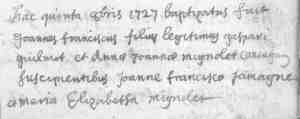 hac quinta 9bris 1727 baptizatus fuit
Joannes franciscus filius legitimus gaspari
guilmot et Annæ Joannæ mignolet coniugum
suscipientibus Joanne francisco famagne
et maria Elizabetha mignolet